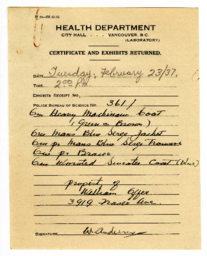 HEALTH DEPARTMENT
CITY HALL . . . VANCOUVER, B.C.
(LABORATORY)
CERTIFICATE AND EXHIBITS RETURNED.
DATE Tuesday, February 23/37.
TIME 2:00 P.M.
EXHIBITS RECEIPT NO.
POLICE BUREAU OF SCIENCE NO. 3611
One Heavy Mackinaw Coat
(Green & Brown)
One Mans Blue Serge Jacket
One pr Mans Blue Serge Trousers
One pr Braces
One Worsted Sweater Coat (Blue)
Property of
William
3919 Fraser Ave.
SIGNATURE